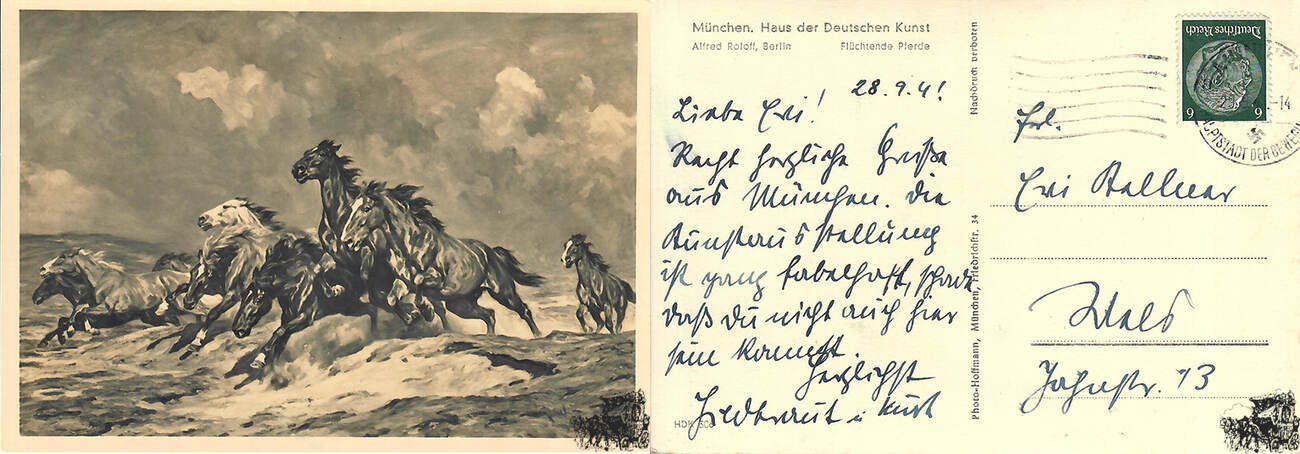 München. Haus der Deutschen Kunst
Alfred Roloff, Berlin Flüchtende Pferde
28.9.41
Liebe Evi!
Recht herzliche Grüße
aus München. Die
Kunstausstellung
ist ganz fabelhaft, schade
daß du nicht auch hier
sein kannst.
Herzlichst
u Kurt
HDK
Nachdruck verboten
Photo-Hoffmann, München, Friedrichstr. 34
Deutsches Reich
6 6
-14
HAUPTSTADT DER BEWEGU
Frl.
Evi
Wels
Jahnstr. 13